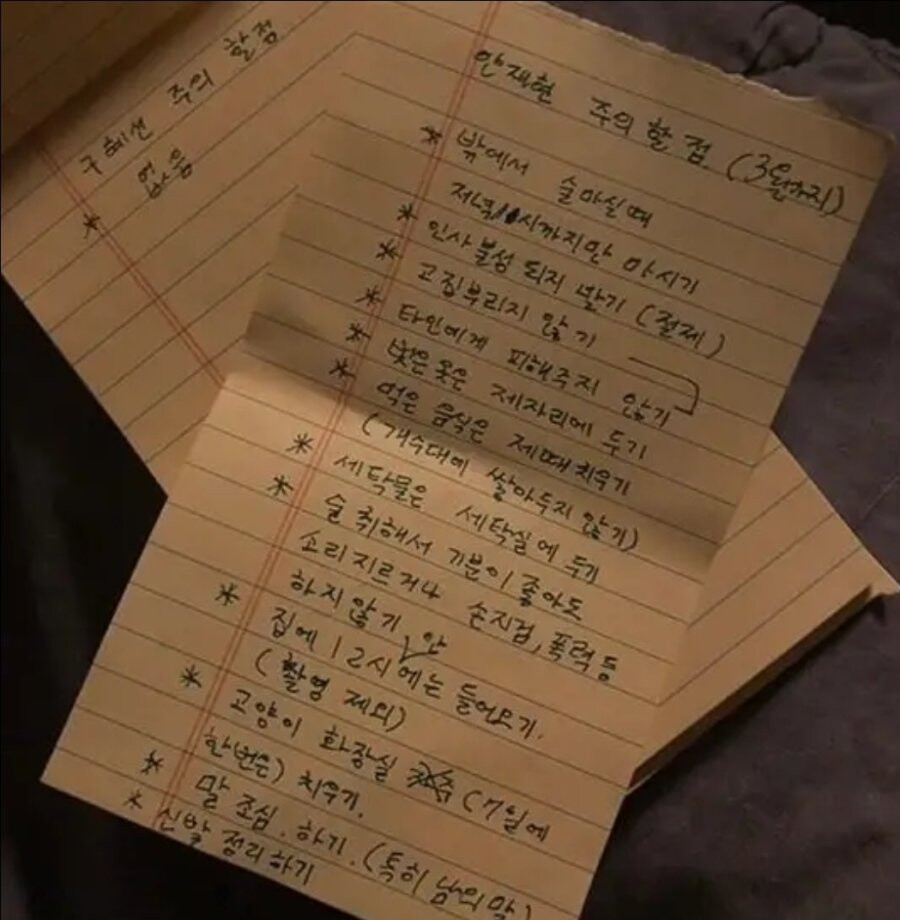 구혜선 주의 할점
* 없음
안재현 주의 할 점 (3월까지)
* 밖에서 술마실때
저녁11시까지만 마시기
* 인사불성 되지 말기 (절제)
* 고집부리지 않기
* 타인에게 피해주지 않기
* 벗은 옷은 제자리에 두기
* 먹은 음식은 제때 치우기
(개수대에 쌓아두지 않기)
* 세탁물은 세탁실에 두기
* 술 취해서 기분이 좋아도
소리지르거나 손지검, 폭력 등
하지 않기
* 집에 12시 안에는 들어오기.
(촬영 제외)
* 고양이 화장실 (7일에
한번은) 치우기.
* 말 조심. 하기. (특히 남의 말)
* 신발 정리하기